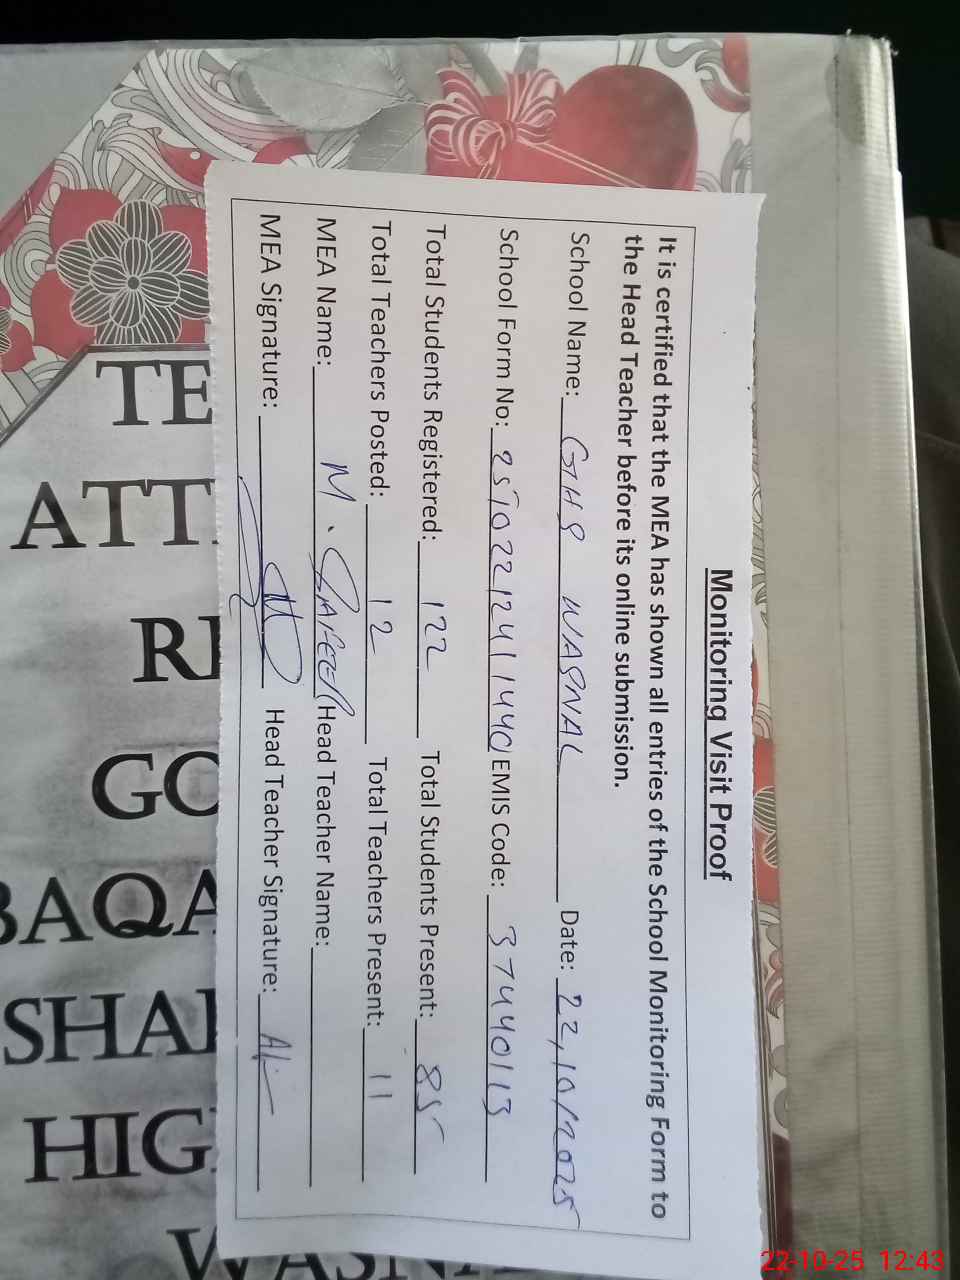 Monitoring Visit Proof
It is certified that the MEA has shown all entries of the School Monitoring Form to
the Head Teacher before its online submission.
School Name: GHS WASNAL Date: 22/10/2025
School Form No: EMIS Code: 37440113
Total Students Registered: 122 Total Students Present: 85
Total Teachers Posted: 12 Total Teachers Present: 11
MEA Name: M. Head Teacher Name:
MEA Signature: Head Teacher Signature:
TE
ATT
RE
GO
BAQA
SHAH
HIG
WASNA
22-10-25 12:43